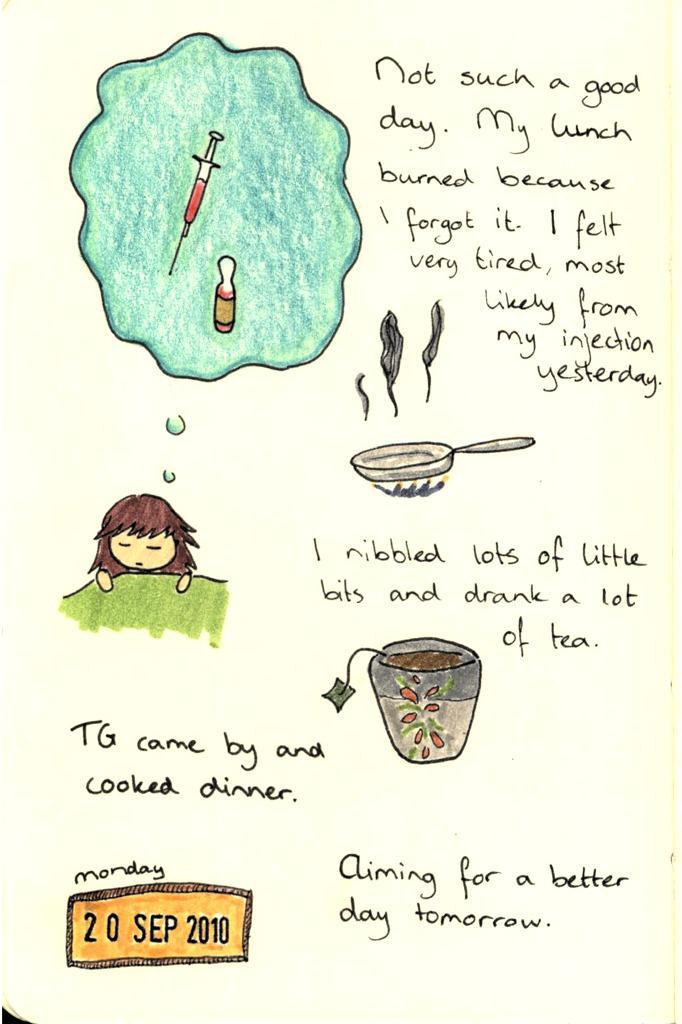 Not such a good
day. My lunch
burned because
I forgot it. I felt
very tired, most
likely from
my injection
yesterday.
I nibbled lots of little
bits and drank a lot
of tea.
TG came by and
cooked dinner.
monday
20 SEP 2010
Aiming for a better
day tomorrow.